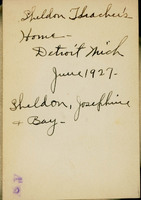 Sheldon Thacher's
Home –
Detroit Mich
June 1927.
Sheldon, Josephine
& Bay –